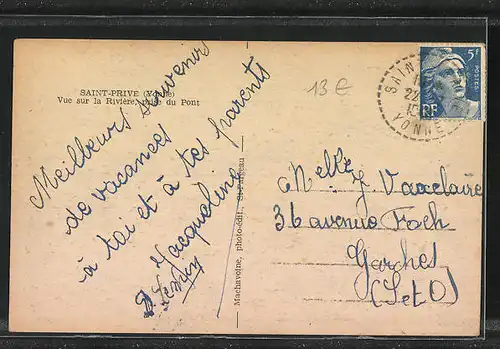 SAINT-PRIVÉ (Yonne)
Vue sur la Rivière, prise du Pont
13 €
Meilleurs souvenirs
de vacances
à toi et à tes parents
Jacqueline
Machavoine, photo-édit. St-Fargeau
SAINT
22
YONNE
5F
POSTES
RF
Melle J. Vauclaire
36 avenue Foch
Garches
(S et O)